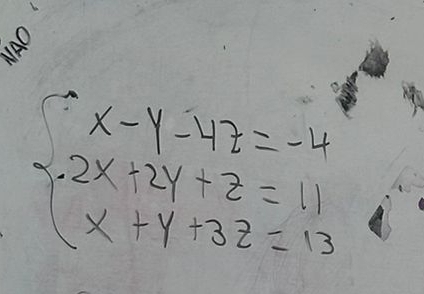 NAO
x - y - 4z = -4
2x + 2y + z = 11
x + y + 3z = 13